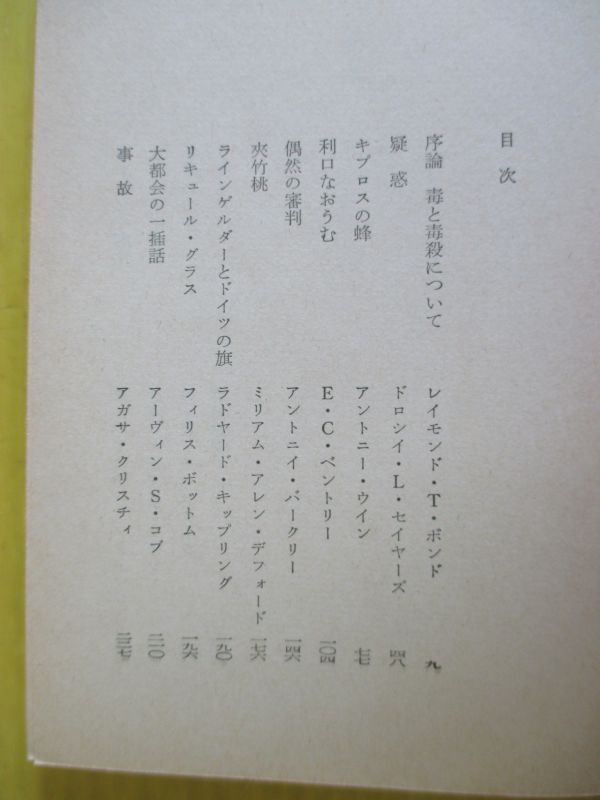 目次
序論 毒と毒殺について レイモンド・T・ボンド 九
疑惑 ドロシイ・L・セイヤーズ 四八
キプロスの蜂 アントニー・ウイン 七七
利口なおうむ E・C・ベントリー 一〇四
偶然の審判 アントニイ・バークリー 一四六
夾竹桃 ミリアム・アレン・デフォード 一七六
ラインゲルダーとドイツの旗 ラドヤード・キップリング 一九〇
リキュール・グラス フィリス・ボットム 一九六
大都会の一挿話 アーヴィン・S・コブ 二一〇
事故 アガサ・クリスティ 二三七